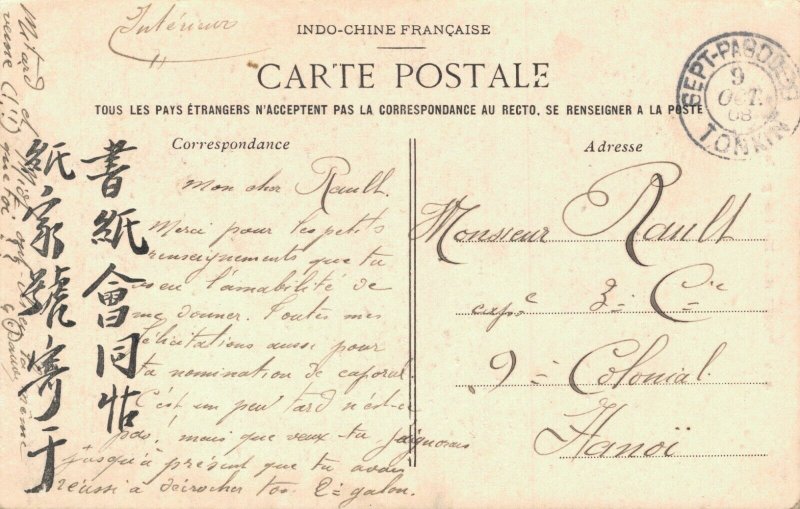 Intérieur
INDO-CHINE FRANÇAISE
CARTE POSTALE
TOUS LES PAYS ÉTRANGERS N'ACCEPTENT PAS LA CORRESPONDANCE AU RECTO, SE RENSEIGNER A LA POSTE
SEPT-PAGODES
9
OCT.
08
TONKIN
Correspondance
Adresse
Mon cher Rault.
Merci pour les petits
renseignements que tu
as eu l'amabilité de
me donner. Toutes mes
félicitations aussi pour
ta nomination de caporal.
C'est un peu tard n'est-ce
pas, mais que veux-tu j'ignorais
jusqu'à présent que tu avais
réussi à décrocher ton 2e galon.
Monsieur Rault
3e Cie
9e Colonial
Hanoï
書紙會同帖
紙家號寄于